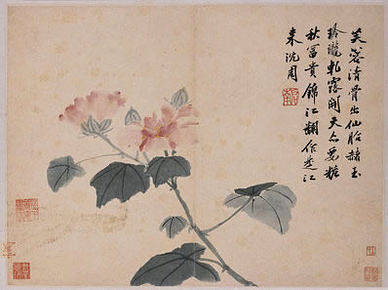 芙蓉清骨出仙胎赭玉
玲瓏軋露開天亦要粧
秋富貴錦江翻作楚江
来沈周